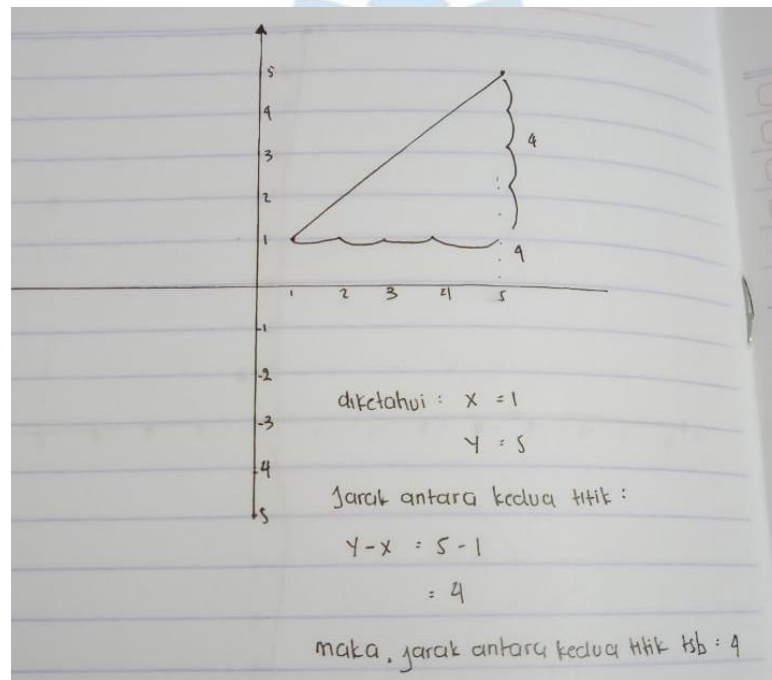 5
4
3
2
1
4
4
1 2 3 4 5
-1
-2
-3
-4
-5
diketahui : x = 1
y = 5
Jarak antara kedua titik :
y - x = 5 - 1
= 4
maka, jarak antara kedua titik tsb = 4